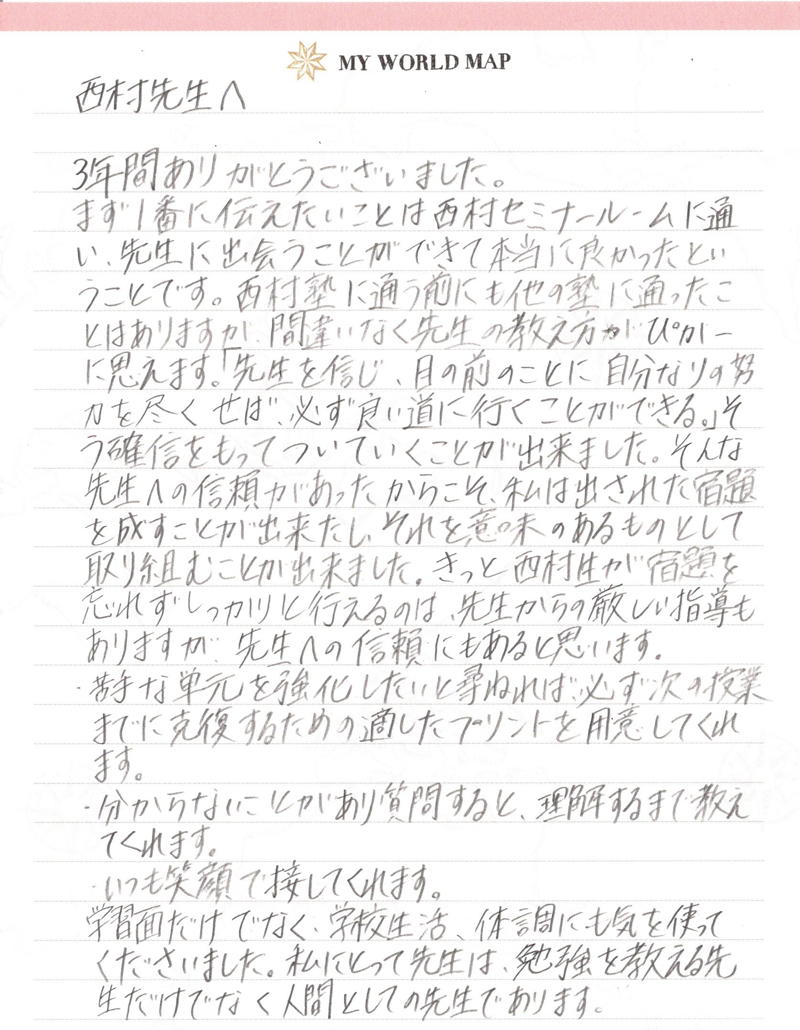 MY WORLD MAP
西村先生へ
3年間ありがとうございました。
まず1番に伝えたいことは西村セミナールームに通
い、先生に出会うことができて本当に良かったとい
うことです。西村塾に通う前にも他の塾に通ったこ
とはありますが、間違いなく先生の教え方がぴか一
に思えます。「先生を信じ、目の前のことに自分なりの努
力を尽くせば、必ず良い道に行くことができる。」そ
う確信をもってついていくことが出来ました。そんな
先生への信頼があったからこそ、私は出された宿題
を成すことが出来たし、それを意味のあるものとして
取り組むことが出来ました。きっと西村生が宿題を
忘れずしっかりと行えるのは、先生からの厳しい指導も
ありますが、先生への信頼にもあると思います。
・苦手な単元を強化したいと尋ねれば、必ず次の授業
までに克復するための適したプリントを用意してくれ
ます。
・分からないことがあり質問すると、理解するまで教え
てくれます。
・いつも笑顔で接してくれます。
学習面だけでなく、学校生活、体調にも気を使って
くださいました。私にとって先生は、勉強を教える先
生だけでなく人間としての先生であります。